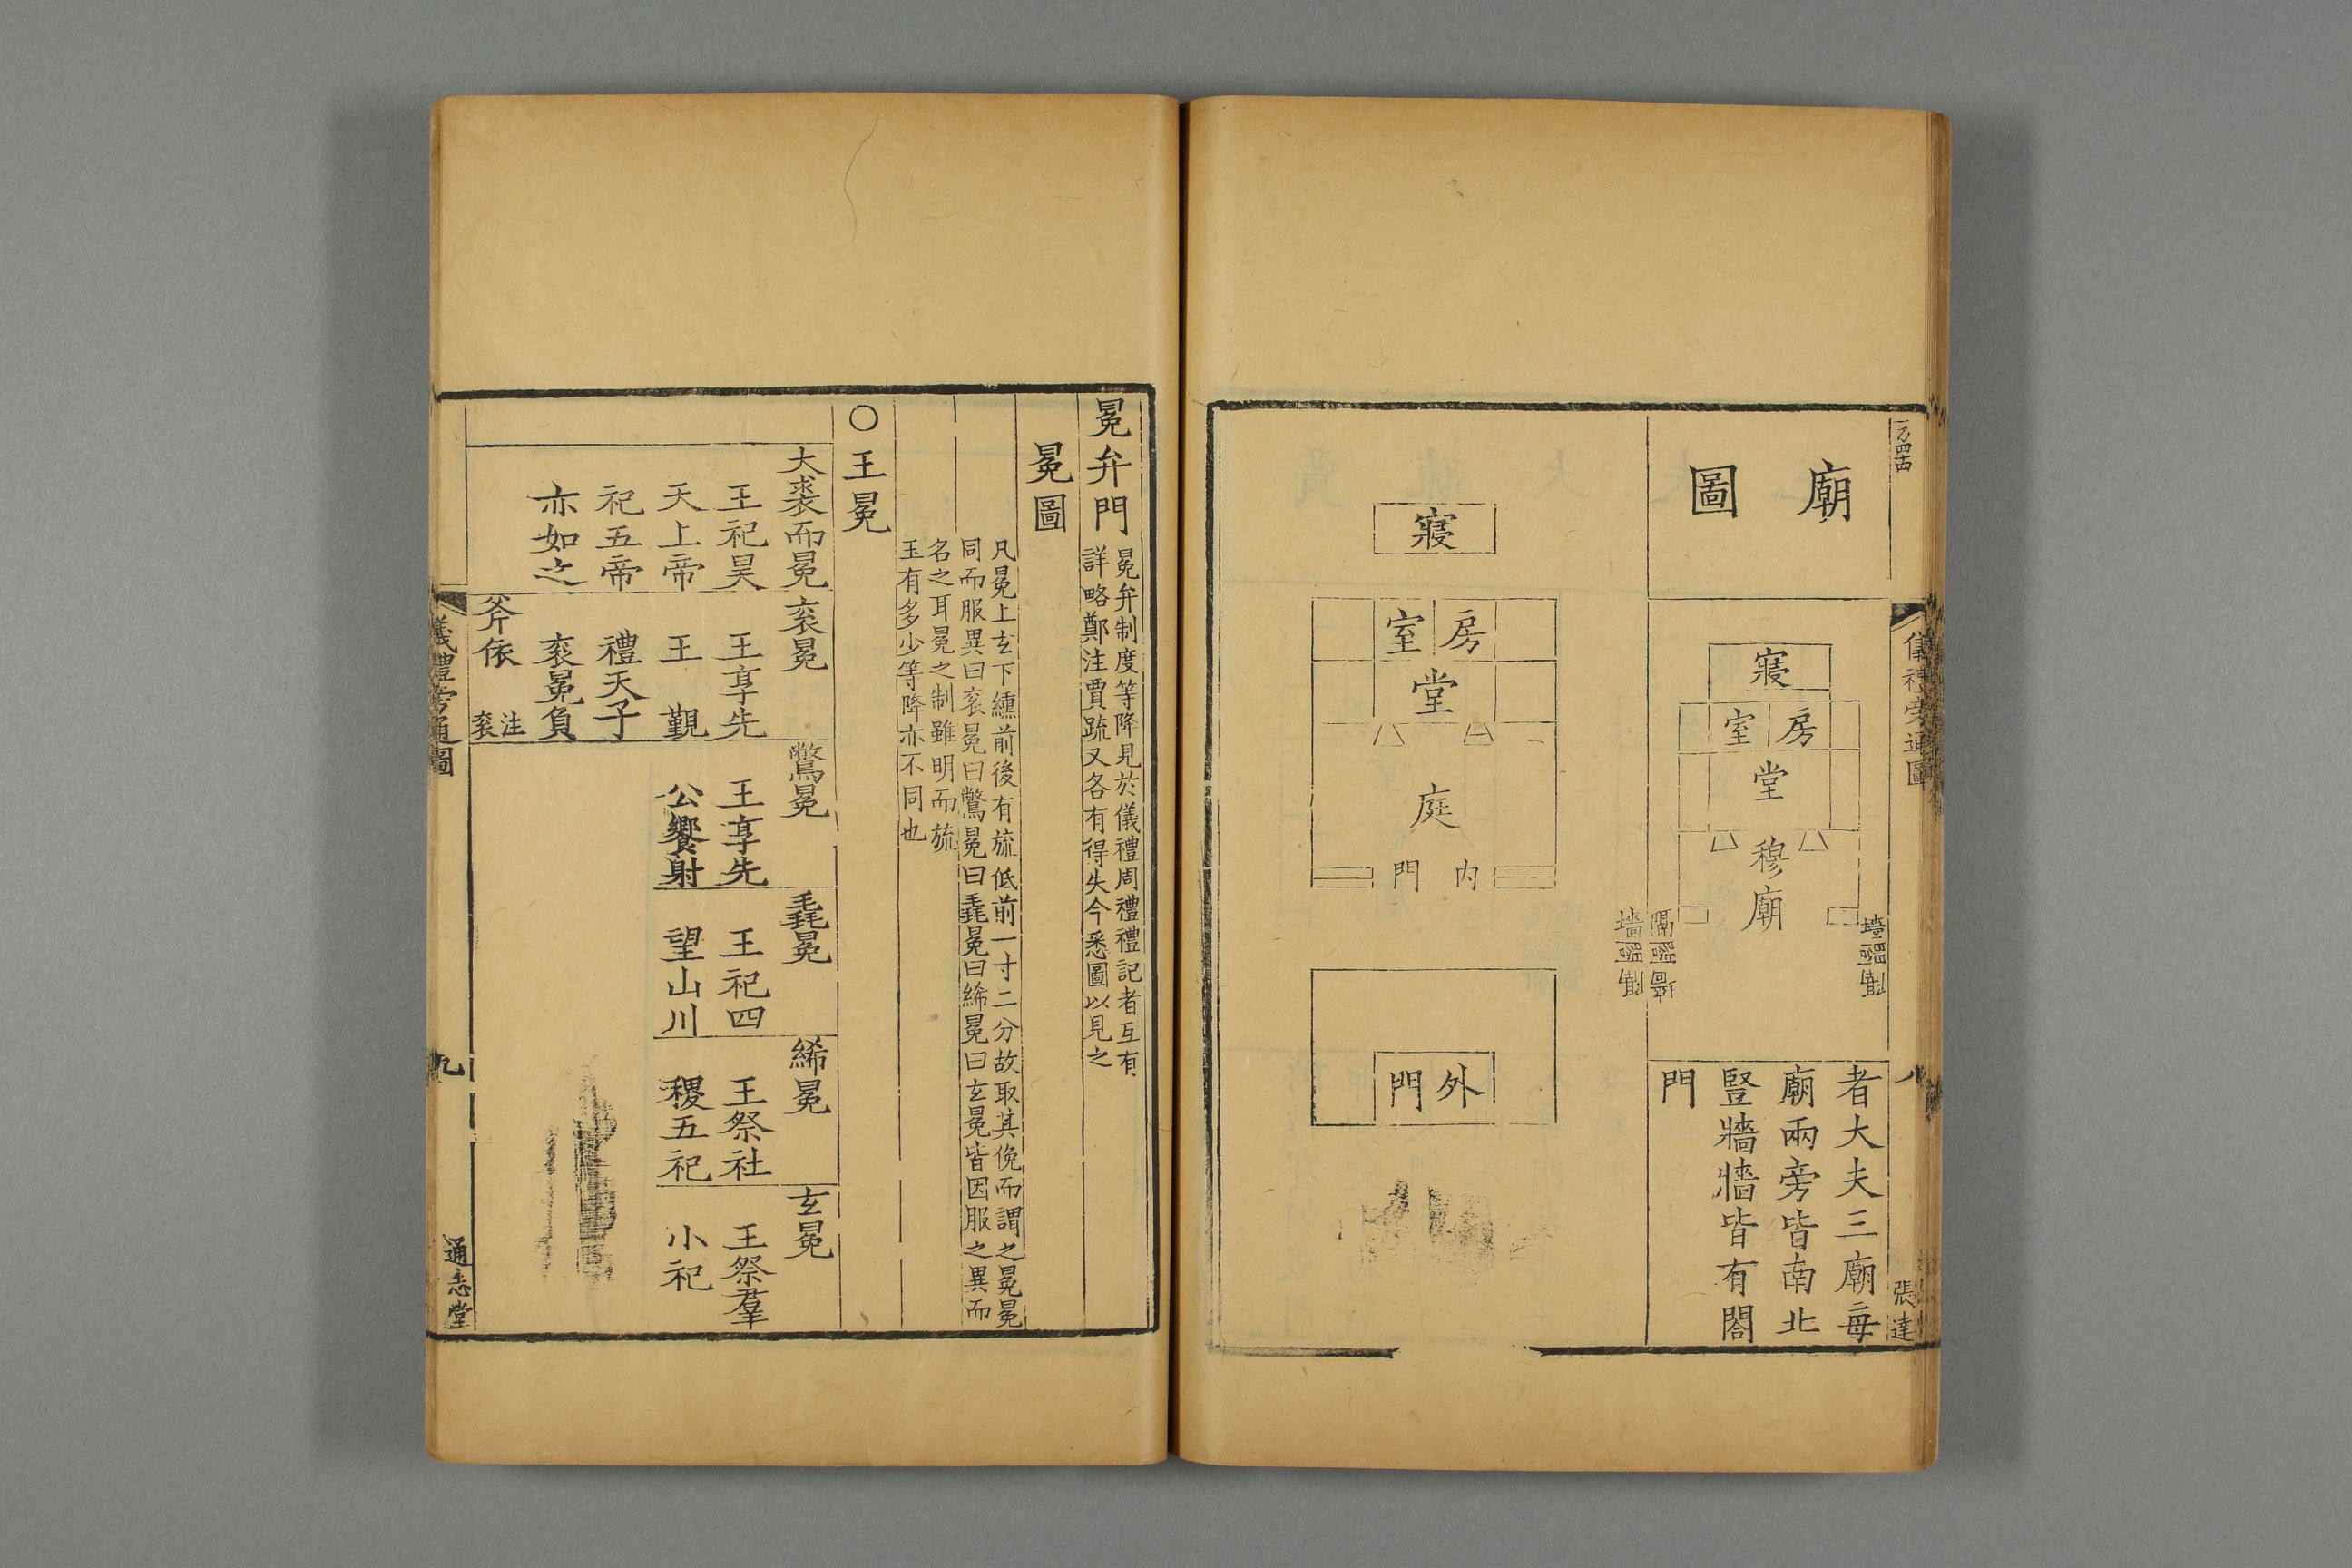 廟圖
儀禮旁通圖
八
張達
寢
房室
堂
穆廟
墻
隔墻
者大夫三廟毎
廟兩旁皆南北
豎牆牆皆有閤
門
寢
房室
堂
庭
内門
外門
冕弁門
冕弁制度等降見於儀禮周禮禮記者互有
詳略鄭注賈疏又各有得失今悉圖以見之
冕圖
凡冕上玄下纁前後有旒低前一寸二分故取其俛而謂之冕冕
同而服異曰衮冕曰鷩冕曰毳冕曰絺冕曰玄冕皆因服之異而
名之耳冕之制雖明而旒
玉有多少等降亦不同也
○王冕
大裘而冕
王祀昊
天上帝
祀五帝
亦如之
衮冕
王享先
王 覲
禮天子
衮冕負
斧依 注衮
鷩冕
王享先
公饗射
毳冕
王祀四
望山川
絺冕
王祭社
稷五祀
玄冕
王祭羣
小祀
儀禮旁通圖
九
通志堂